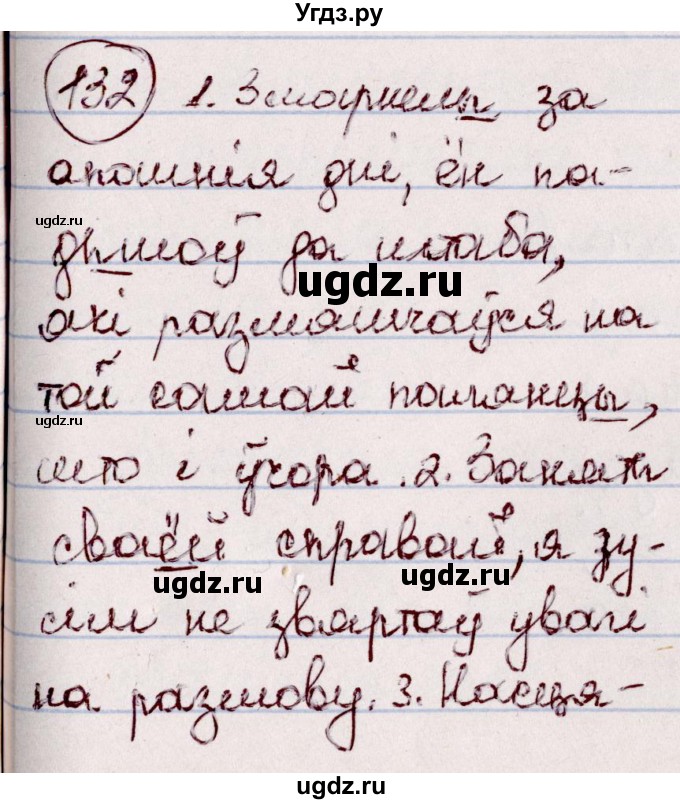 Угдз.ру
132 1. Змарнелы за
апошнія дні, ён па-
дышоў да штаба,
які размяшчаўся на
той самай палянцы,
што і ўчора. 2. Заняты
сваёй справай, я зу-
сім не звяртаў увагі
на размову. 3. Насця-
ugdz.ru
ugdz.ru
ugdz.ru
ugdz.ru
ugdz.ru
ugdz.ru